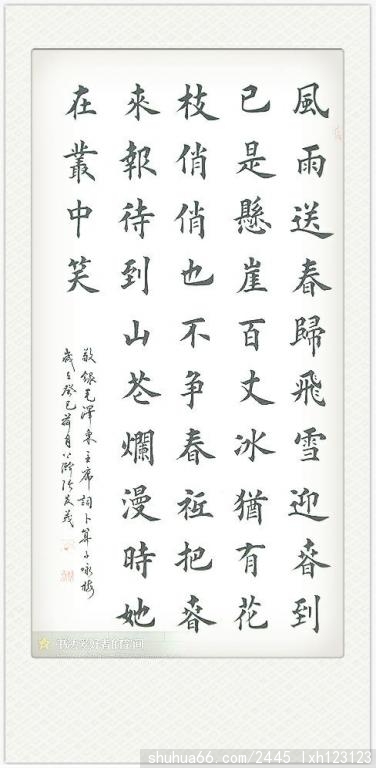 風雨送春歸飛雪迎春到
已是懸崖百丈冰猶有花
枝俏俏也不争春祇把春
來報待到山花爛漫時她
在叢中笑
敬録毛澤東主席詞卜算子咏梅
歲在癸巳荷月
书法爱好者的空间
shuhua66.com/2445_lxh123123